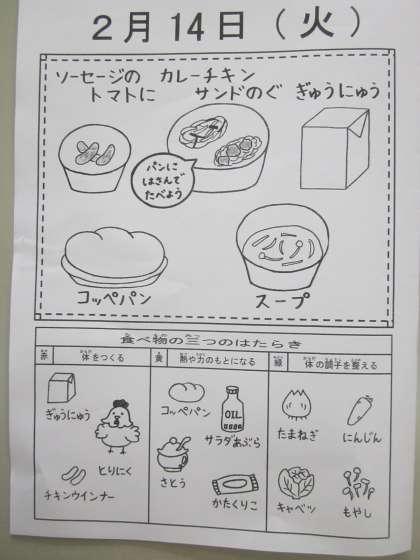 2月14日(火)
ソーセージの カレーチキン
トマトに サンドのぐ ぎゅうにゅう
パンに
はさんで
たべよう
コッペパン スープ
食べ物の三つのはたらき
赤 体をつくる 黄 熱や力のもとになる 緑 体の調子を整える
ぎゅうにゅう
とりにく
チキンウインナー
コッペパン
OIL
サラダあぶら
さとう
かたくりこ
たまねぎ
にんじん
キャベツ
もやし